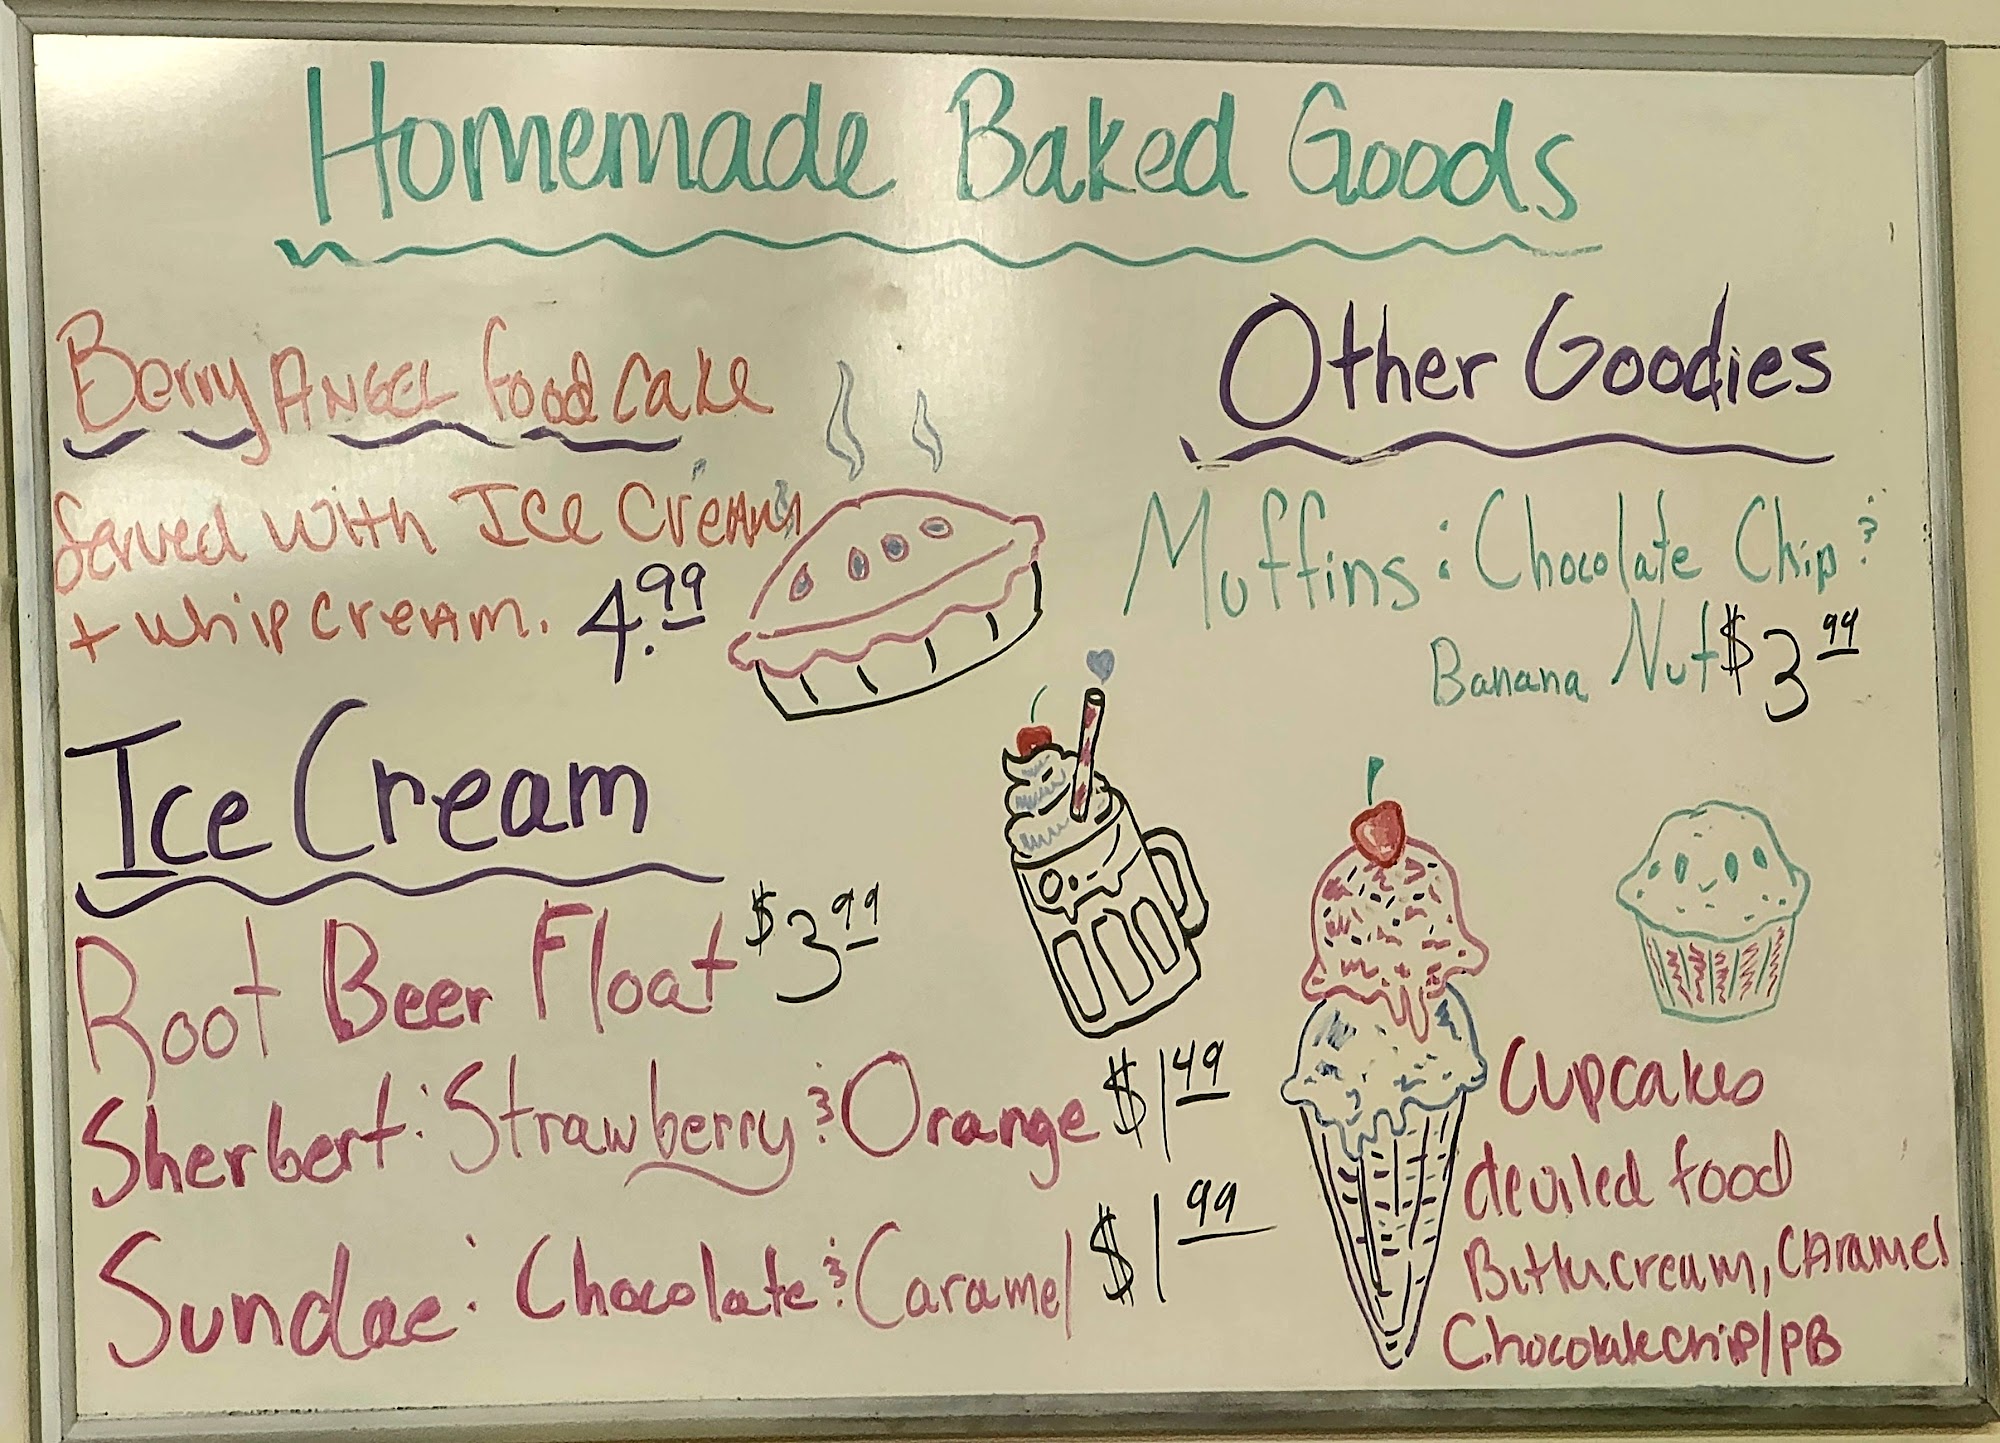 Homemade Baked Goods
Berry Angel food cake
Served with Ice Cream
+ whip cream. 4.99
Ice Cream
Root Beer Float $3.99
Sherbert: Strawberry & Orange $1.49
Sundae: Chocolate & Caramel $1.99
Other Goodies
Muffins: Chocolate Chip &
Banana Nut $3.99
Cupcakes
deviled food
Buttercream, Caramel
Chocolate chip/PB